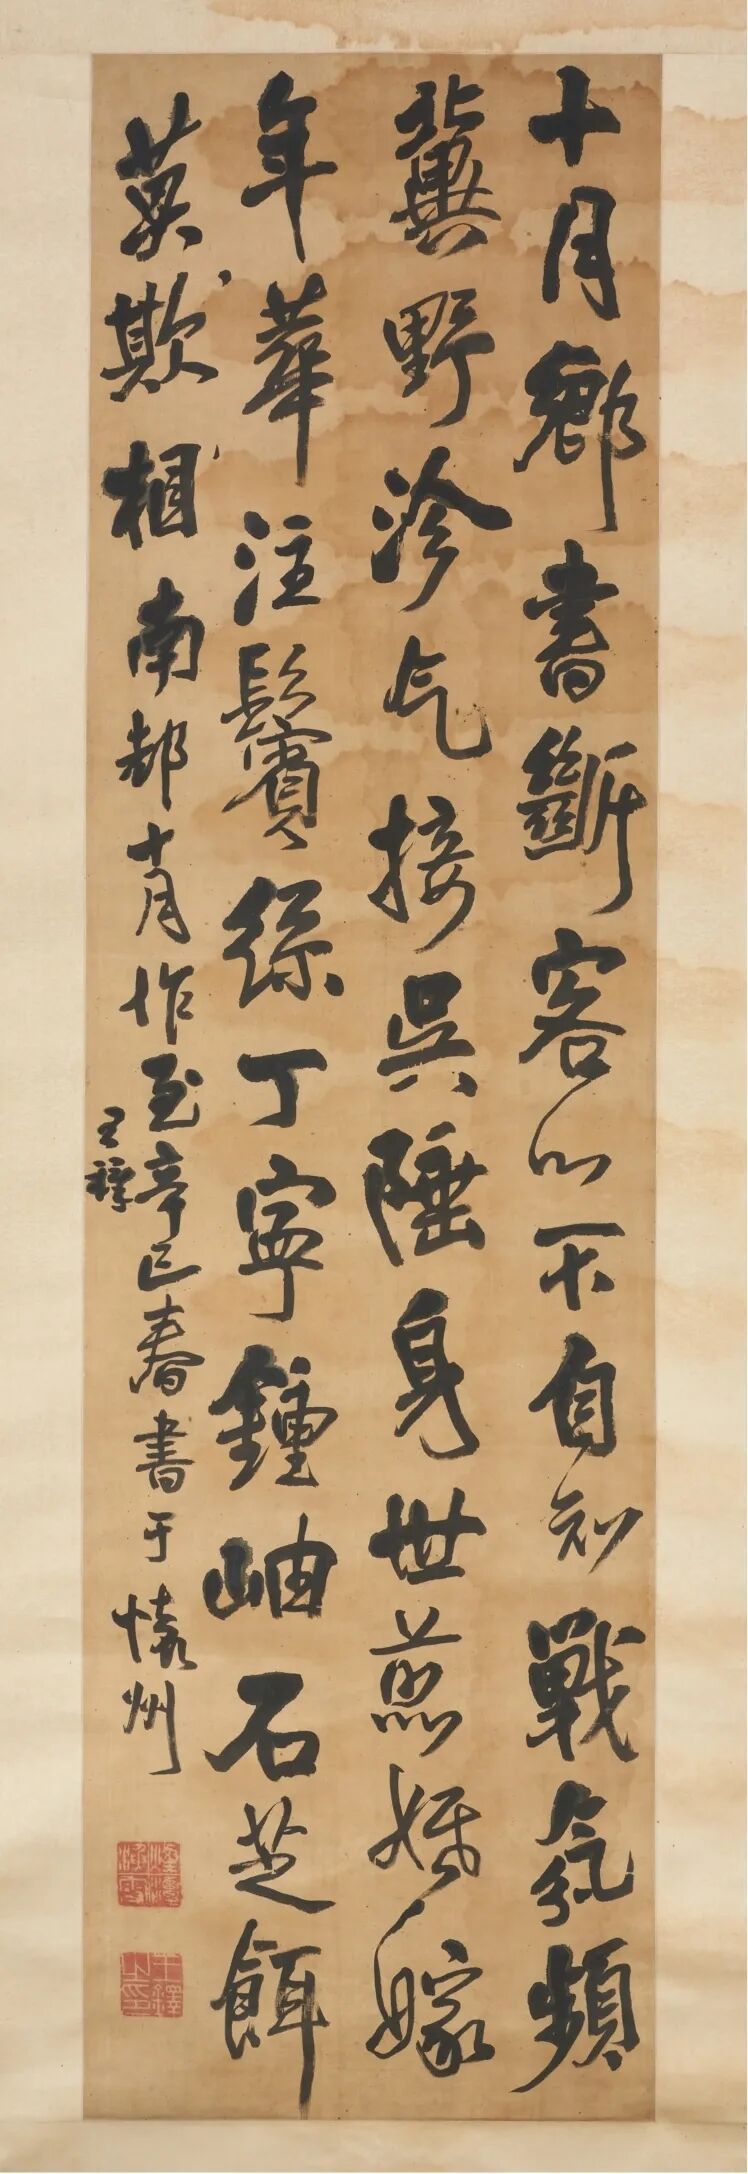 十月鄉書斷客心不自知戰氛頻
冀野沴气接吳陲身世兼婚嫁
年華注鬢絲丁寧鍾岫石芝餌
莫欺相南都十月作至辛巳春書于懷州
王鐸
王鐸之印